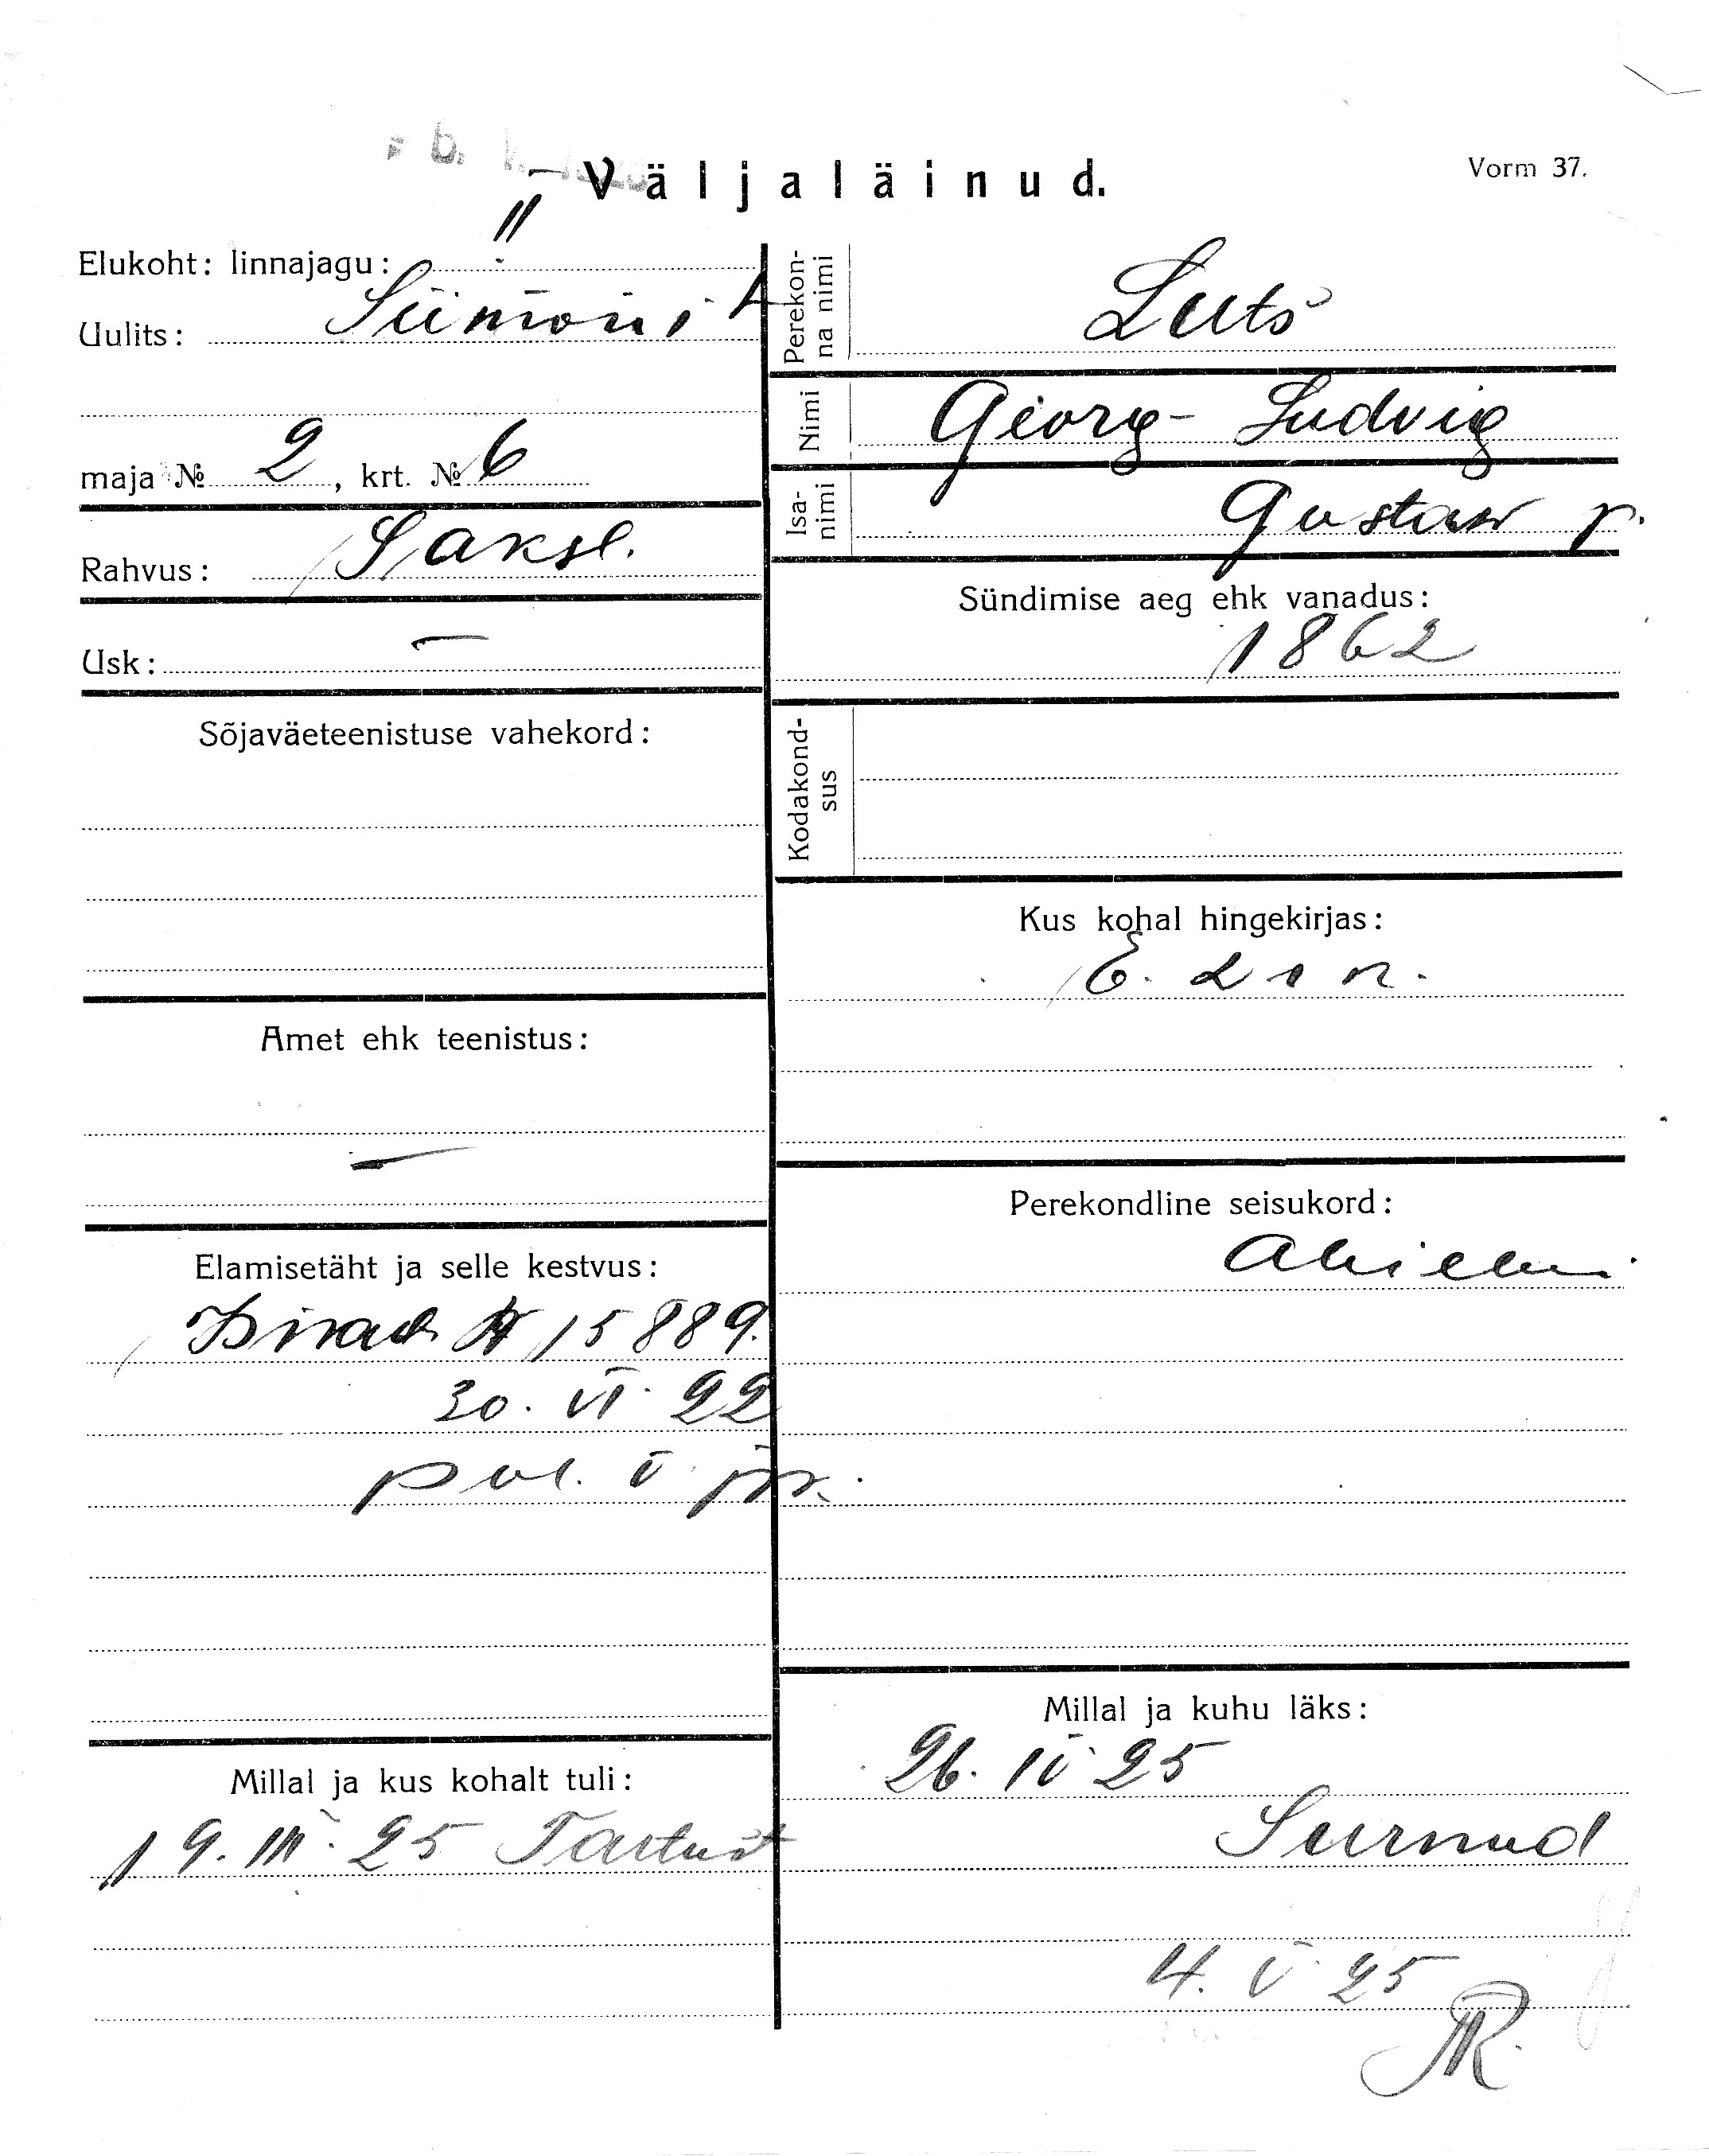 Väljaläinud.
Vorm 37.
Elukoht: linnajagu: II
Uulits: Siimoni
maja № 2, krt. № 6
Rahvus: Saksl.
Usk: —
Sõjaväeteenistuse vahekord:
Amet ehk teenistus:
—
Elamisetäht ja selle kestvus:
№ 15889.
30. VI. 22
pol. V jsk.
Millal ja kus kohalt tuli:
19. III. 25 Tartust
Perekonna nimi
Luts
Nimi
Georg-Ludvig
Isanimi
Gustaw p.
Sündimise aeg ehk vanadus:
1862
Kodakondsus
Kus kohal hingekirjas:
Perekondline seisukord:
Abielus.
Millal ja kuhu läks:
26. IV 25
Surnud
4. V 25